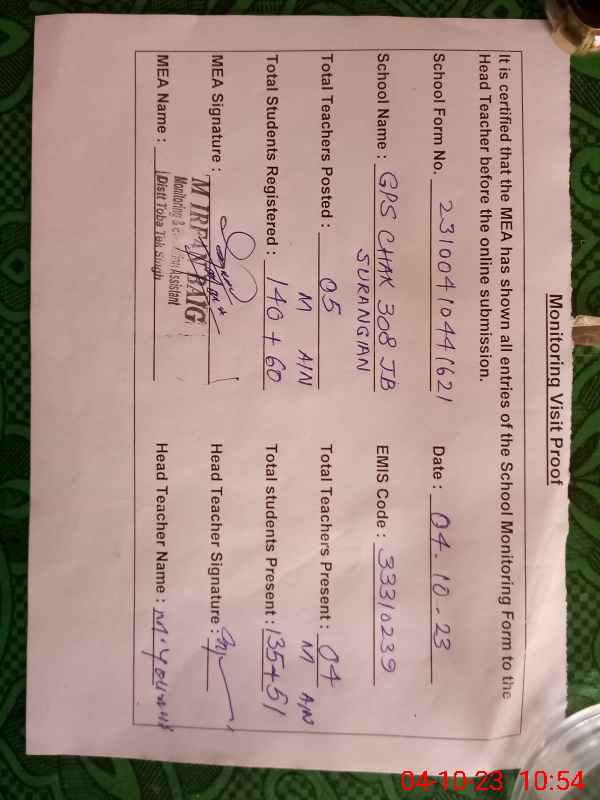 Monitoring Visit Proof
It is certified that the MEA has shown all entries of the School Monitoring Form to the
Head Teacher before the online submission.
School Form No. 23100410441621 Date : 04.10-23
School Name : GPS CHAK 308 JB EMIS Code : 33310239
SURANGIAN
Total Teachers Posted : 05 Total Teachers Present : 04
M A/N M A/N
Total Students Registered : 140 + 60 Total students Present : 135+51
MEA Signature : Head Teacher Signature :
M IRFAN BAIG
Monitoring & Assistant
MEA Name : Distt Toba Tek Singh Head Teacher Name : M. Younus
04-10-23 10:54